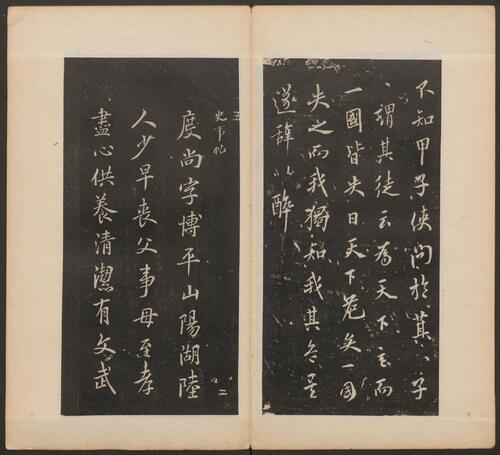 不知甲子使问於萁〻子
〻謂其徒云為天下主而
一國皆失日天下危矣一国
失之而我獨知我其危矣
遂辞以醉
五
史事帖
度尚字博平山陽湖陸
人少早喪父事母至孝
盡心供養清潔有文武
二